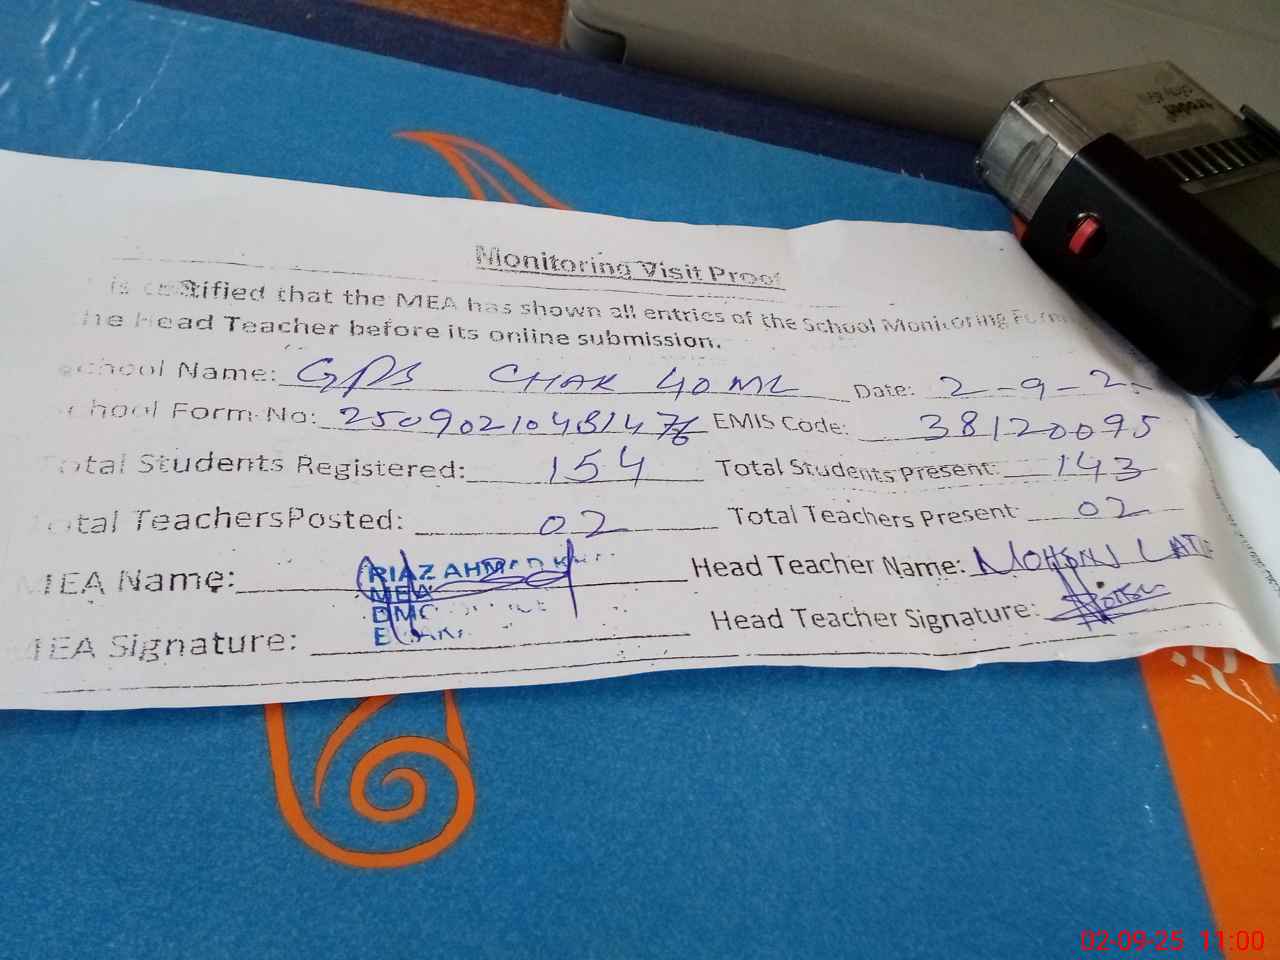 Monitoring Visit Proof
is certified that the MEA has shown all entries of the School Monitoring Form
the Head Teacher before its online submission.
School Name: GPS CHAK 40 ML Date: 2-9-2
School Form No: EMIS Code: 38120095
Total Students Registered: 154 Total Students Present: 143
Total Teachers Posted: 02 Total Teachers Present: 02
MEA Name: RIAZ AHMAD Head Teacher Name: MOHSIN LATIF
MEA
DMO
MEA Signature: Head Teacher Signature:
02-09-25 11:00